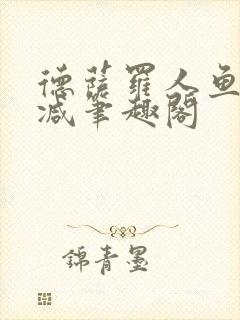 德薩羅人魚
減筆趣閣
錦青墨